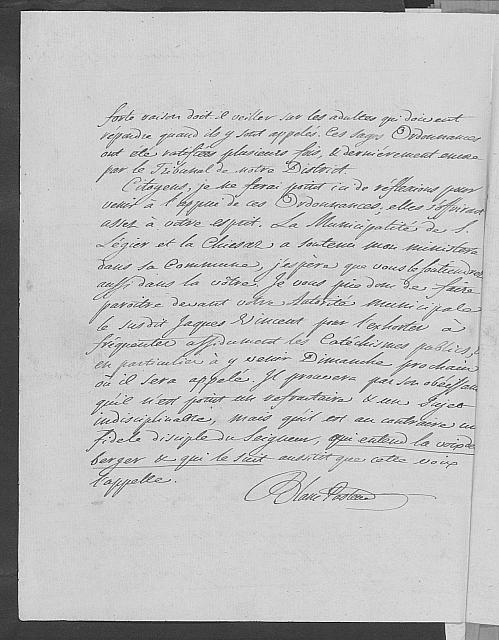 forte raison doit il veiller sur les adultes qui doivent
répondre quand ils y sont appelés. Ces sages Ordonnances
ont été ratifiées plusieurs fois, & dernièrement encore
par le Tribunal de notre District.
Citoyens, je ne ferai point ici de réflexions pour
venir à l'appui de ces Ordonnances, elles s'offriront
assés à votre esprit. La Municipalité de S.
Légier et la Chiesaz a soutenu mon ministère
dans sa Commune, j'espère que vous le soutiendrez
aussi dans la vôtre. Je vous prie donc de faire
paroitre devant votre Autorité municipale
le susdit Jaques Vincent pour l'exhorter à
fréquenter assidument les Catéchismes publics,
en particulier à y venir Dimanche prochain
où il sera appelé. Il prouvera par son obéissance
qu'il n'est point un refractaire & un sujet
indisciplinable, mais qu'il est au contraire un
fidele disciple du Seigneur, qui entend la voix de
berger & qui le suit aussitôt que cette voix
l'appelle.
Blanc Pasteur